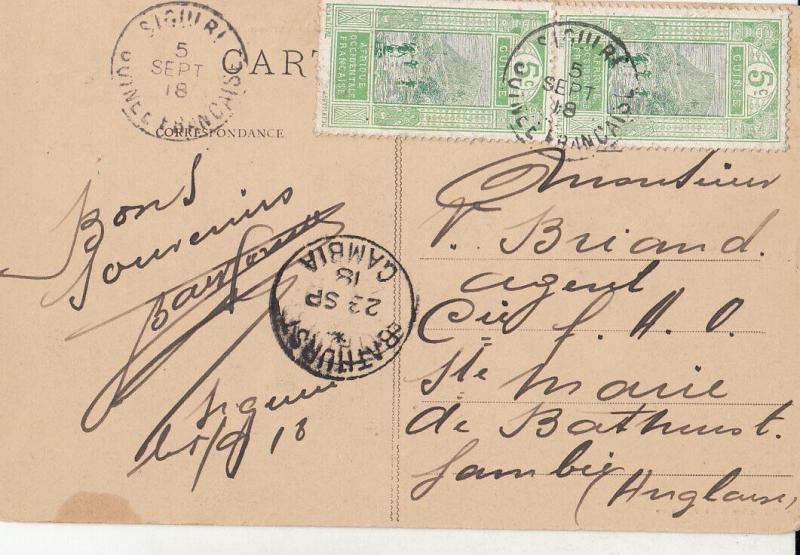 SIGUIRI
5
SEPT
18
GUINEE FRANÇAISE
CART
CORRESPONDANCE
AFRIQUE
OCCIDENTALE
FRANÇAISE
5c
SIGUIRI
5
SEPT
18
GUINEE FRANÇAISE
GUINÉE
5c
Bons
Souvenirs
Siguiri
le 5/9/18
BATHURST
23 SP
18
GAMBIA
Monsieur
V. Briand.
agent
Cie F. A. O.
Ste Marie
de Bathurst.
Gambie
(Anglaise)